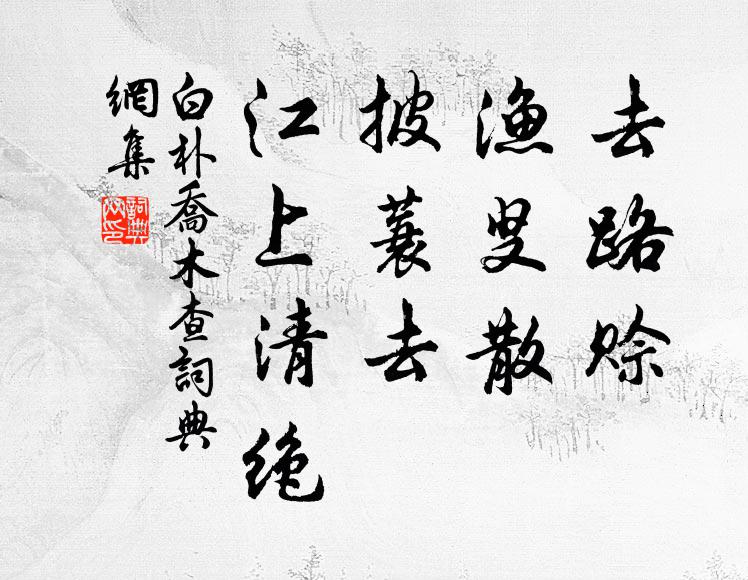 去路赊
渔叟散
披蓑去
江上清绝
白朴喬木查詞典
網集
詞典網印